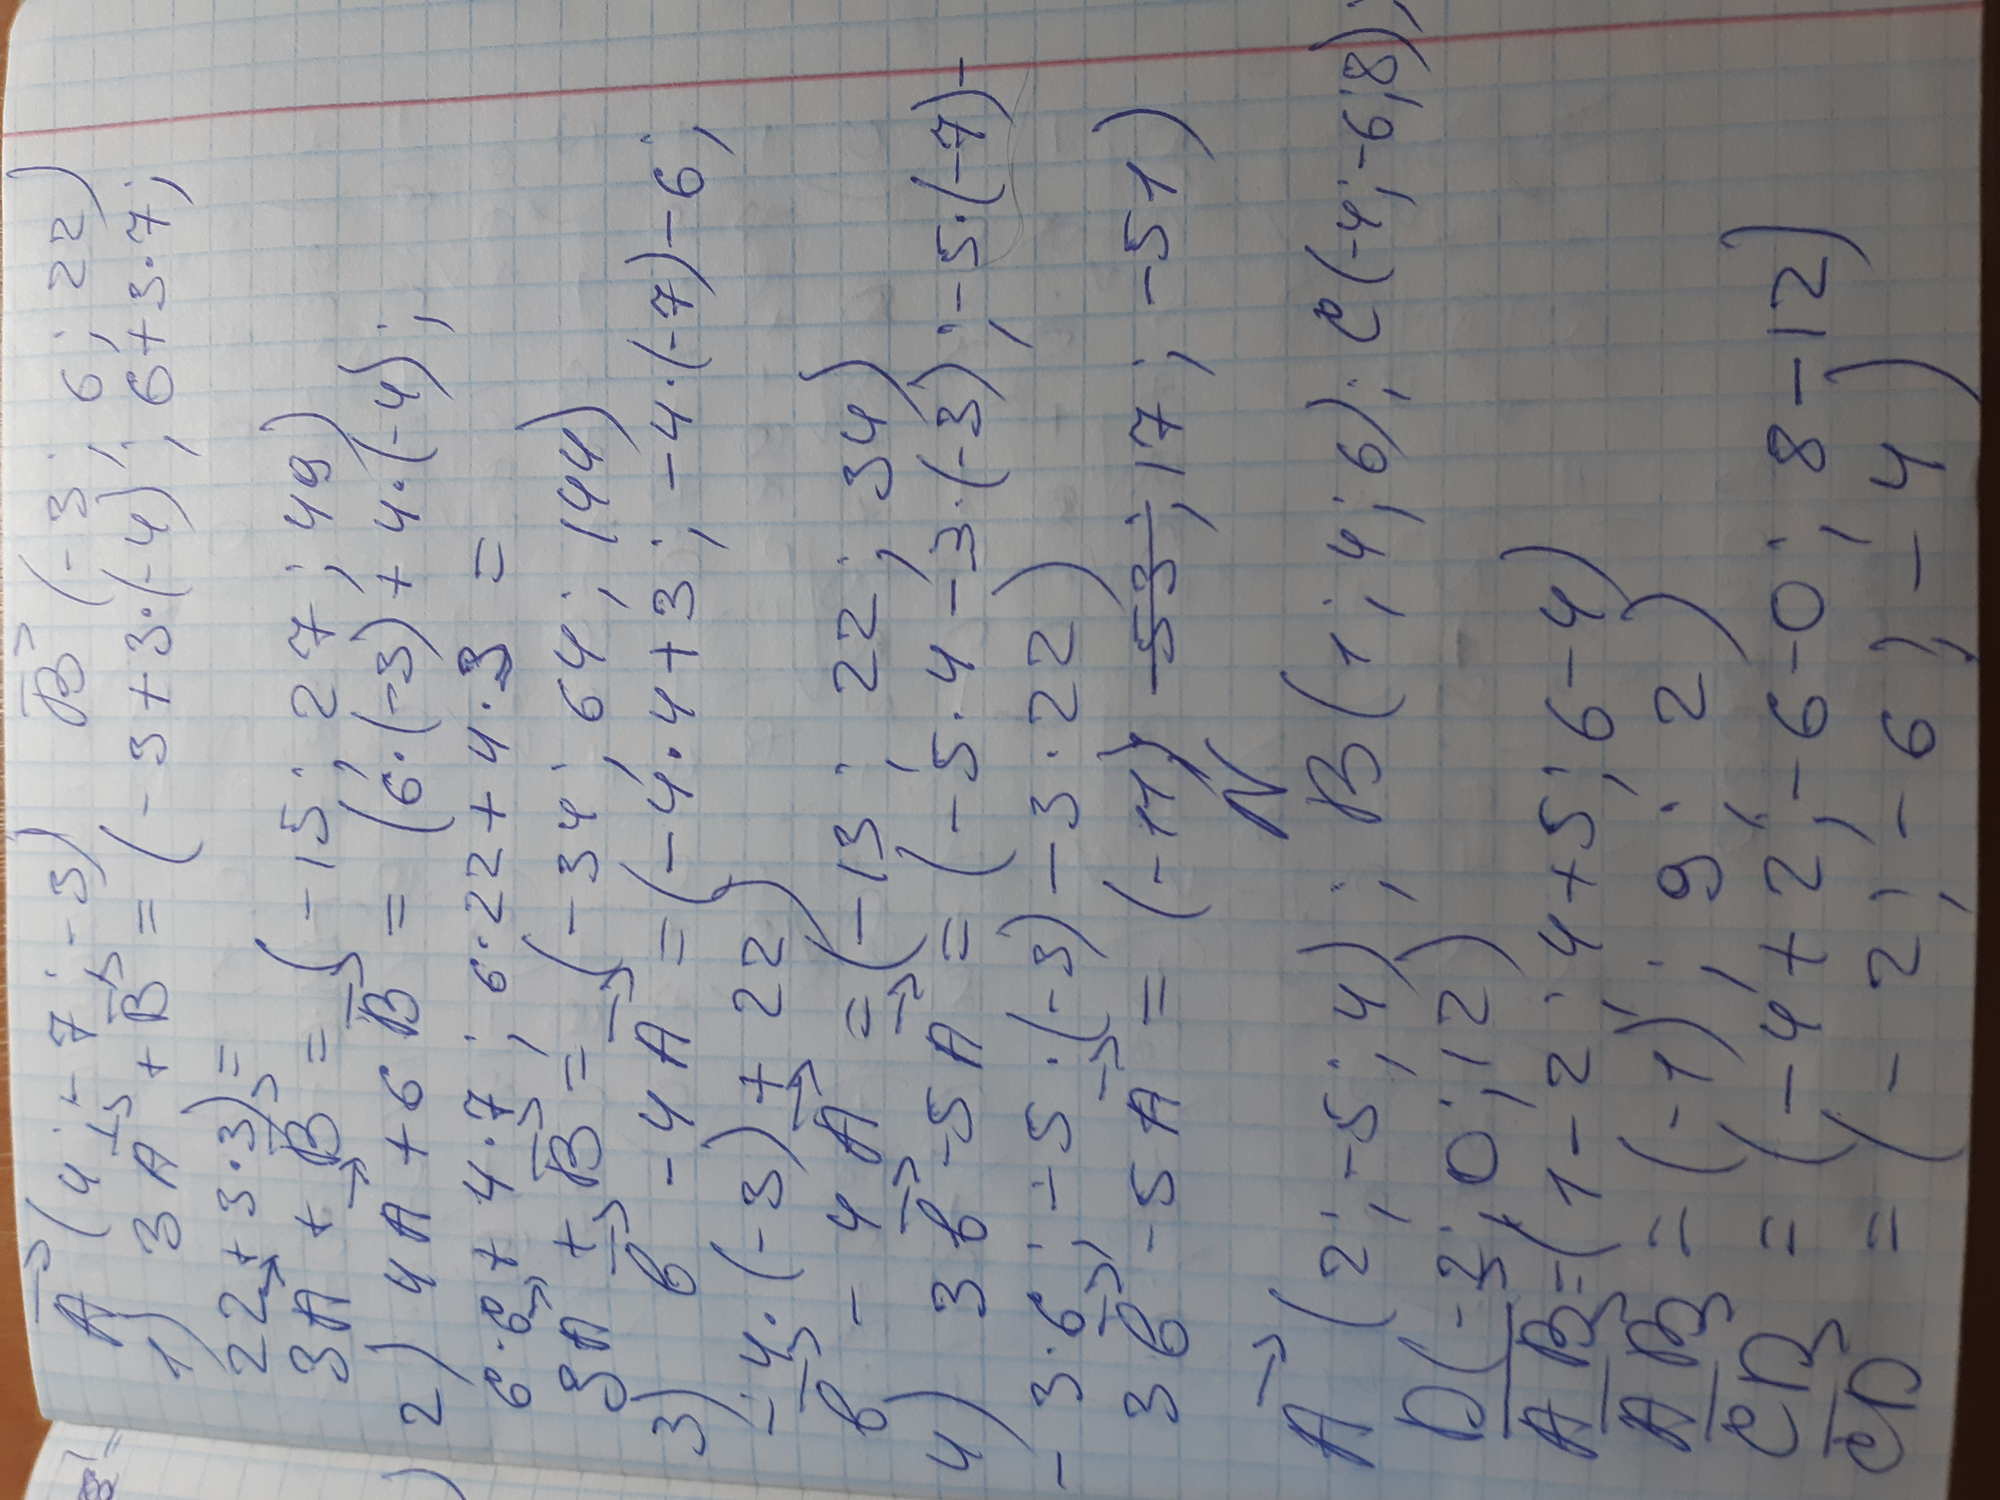 A (4; -7; -3) B (-3; 6; 22)
1) 3A + B = (-3+3·(-4); 6+3·7;
22+3·3) =
3A + B = (-15; 27; 49)
2) 4A + 6B = (6·(-3)+4·(-4);
6·6+4·7; 6·22+4·3 =
3A + B = (-34; 64; 144)
3) в -4A = (-4·4+3; -4·(-7)-6;
-4·(-3)+22)
в - 4A = (-13; 22; 34)
4) 3в -5A = (-5·4-3·(-3); -5·(-7)-
-3·6; -5·(-3)-3·22)
3в -5A = (-11; 17; -51)
N
A (2; -5; 4); B (1; 4; 6); C (-4; -6; 8);
D (-2; 0; 12)
AB = (1-2; 4+5; 6-4)
AB = (-1; 9; 2)
CD = (-4+2; -6-0; 8-12)
CD = (-2; -6; -4)